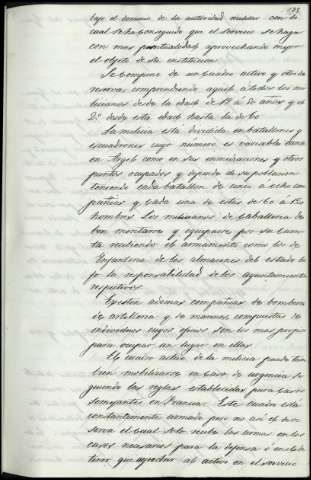 bajo el dominio de la autoridad militar con lo
cual se ha conseguido que el servicio se haga
con mas puntualidad aprovechando mejor
el objeto de su institucion
Se compone de un cuadro activo y otro de
reserva comprendiendo aquel á todos los mi
licianos desde la edad de 18 á 50 años y el
2º desde esta edad hasta la de 60
La milicia esta dividida en batallones y
escuadrones cuyo numero es variable tanto
en Argel como en sus inmediaciones y otros
puntos ocupados y depende de su poblacion
teniendo cada batallon de cinco a ocho com
pañias y cada una de estas de 60 á 120
hombres Los milicianos de Caballeria de
ben montarse y equiparse por su cuen
ta recibiendo el armamento como los de
Infanteria de los almacenes del estado ba
jo la responsabilidad de los ayuntamientos
respectivos
Existen ademas compañias de bomberos
de artilleria y de marina compuestas de
individuos cuyos oficios son los mas propios
para ocupar un lugar en ellas
El cuadro activo de la milicia puede tam
bien mobilizarse en caso de urgencia si
guiendo las reglas establecidas para casos
semejantes en Francia Este cuadro esta
constantemente armado pero no asi el de re
serva el cual solo recibe las armas en los
casos necesarios para la defensa
tener que ayudar al activo en el servicio